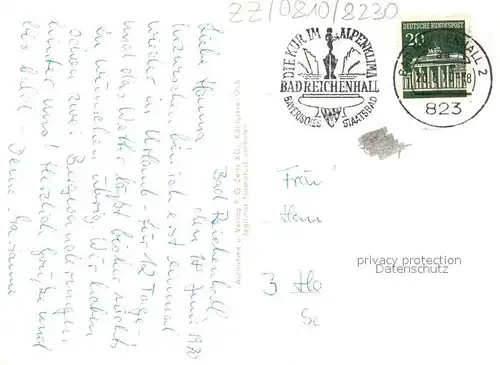 ZZ/0810/8230
DIE KUR IM ALPENKLIMA
BAD REICHENHALL
BAYERISCHES STAATSBAD
DEUTSCHE BUNDESPOST
20
HALL 2
823
Bad Reichenhall,
den 18. Juni 1970
Liebe Hanna,
inzwischen bin ich erst einmal
wieder in Urlaub - für 12 Tage -
und das Wetter läßt bisher nichts
zu wünschen übrig. Wir haben
schon zwei Bergwanderungen
hinter uns! Herzliche Grüße und
bis bald - Deine Marianne
Aufnahme u. Verlag F. G. Zeitz KG., Königssee/Obb.
Jeglicher Nachdruck verboten
Frau
Han
3 Ha
Se
privacy protection
Datenschutz